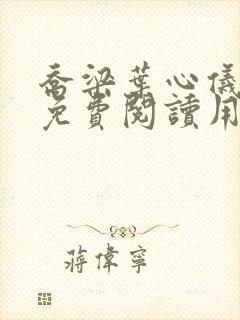 喬梁葉心儀
免費閱讀用
蔣偉寧